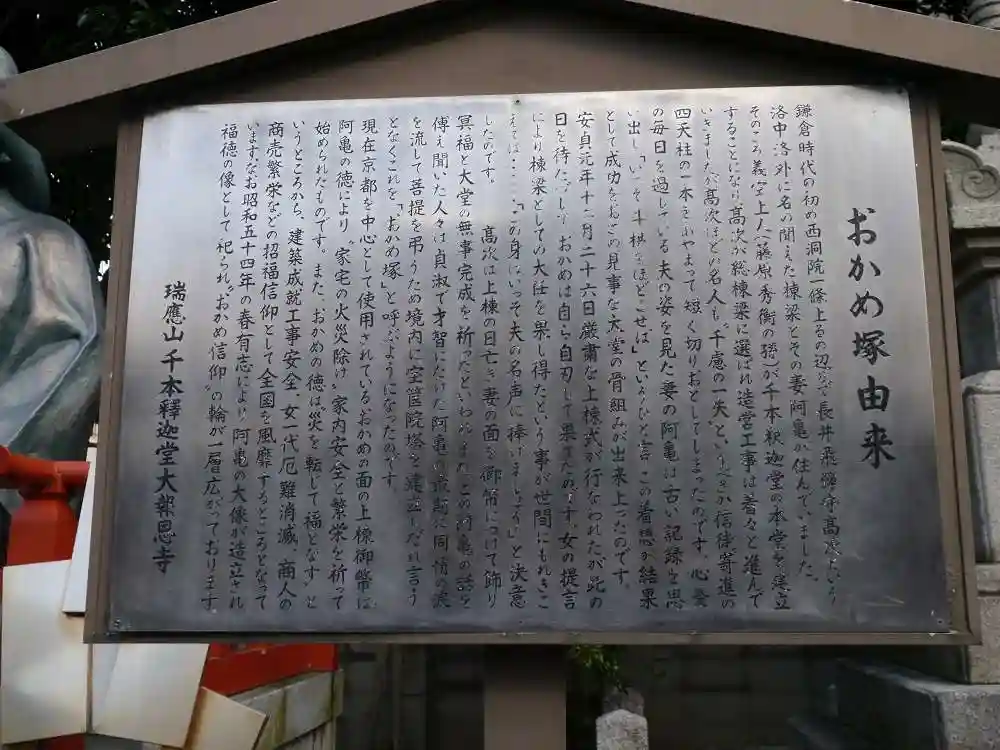 おかめ塚由来
鎌倉時代の初め西洞院一條上るの辺りで長井飛騨守高次という
洛中洛外に名の聞えた棟梁とその妻阿亀が住んでいました。
そのころ義空上人(藤原秀衡の孫)が千本釈迦堂の本堂を建立
することになり高次が総棟梁に選ばれ造営工事は着々と進んで
いきましたが高次ほどの名人も"千慮の一失"というか信徒寄進の
四天柱の一本をあやまって短く切りおとしてしまったのです。心憂
の毎日を過している夫の姿を見た妻の阿亀は古い記録を思
い出し「いっそ斗栱をほどこせば」というひと言、この着想が結果
として成功をおさめ見事な大堂の骨組みが出来上ったのです。
安貞元年十二月二十六日厳粛な上棟式が行なわれたが此の
日を待たずしておかめは自ら自刃して果てたのです。女の提言
により棟梁としての大任を果し得たという事が世間にもれきこ
えては‥‥「この身はいっそ夫の名声に捧げましょう」と決意
したのです。
高次は上棟の日亡き妻の面を御幣につけて飾り
冥福と大堂の無事完成を祈ったといわれ、またこの阿亀の話を
傳え聞いた人々は貞淑で才智にたけた阿亀の最期に同情の涙
を流して菩提を弔うため境内に宝篋院塔を建立しだれ言う
となくこれを「おかめ塚」と呼ぶようになったのです。
現在京都を中心として使用されているおかめの面の上棟御幣は
阿亀の徳により、"家宅の火災除け""家内安全と繁栄を祈って
始められたものです。また、おかめの徳は"災を転じて福となす"と
いうところから、建築成就工事安全、女一代厄難消滅、商人の
商売繁栄などの招福信仰として全国を風靡するところとなって
います。なお昭和五十四年の春有志により阿亀の大像が造立され
福徳の像として祀られ"おかめ信仰"の輪が一層広がっております。
瑞應山千本釋迦堂大報恩寺